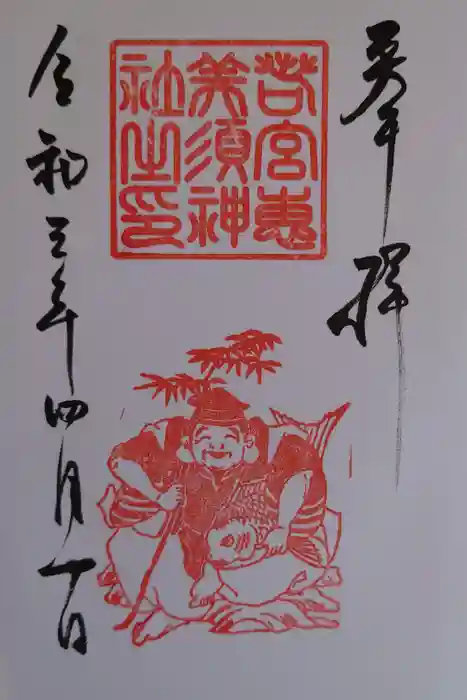 奉拝
若宮恵
美須神
社之印
令和三年四月一日